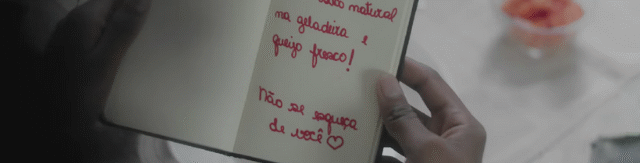 natural
na geladeira e
queijo fresco!
Não se esqueça
de você♡